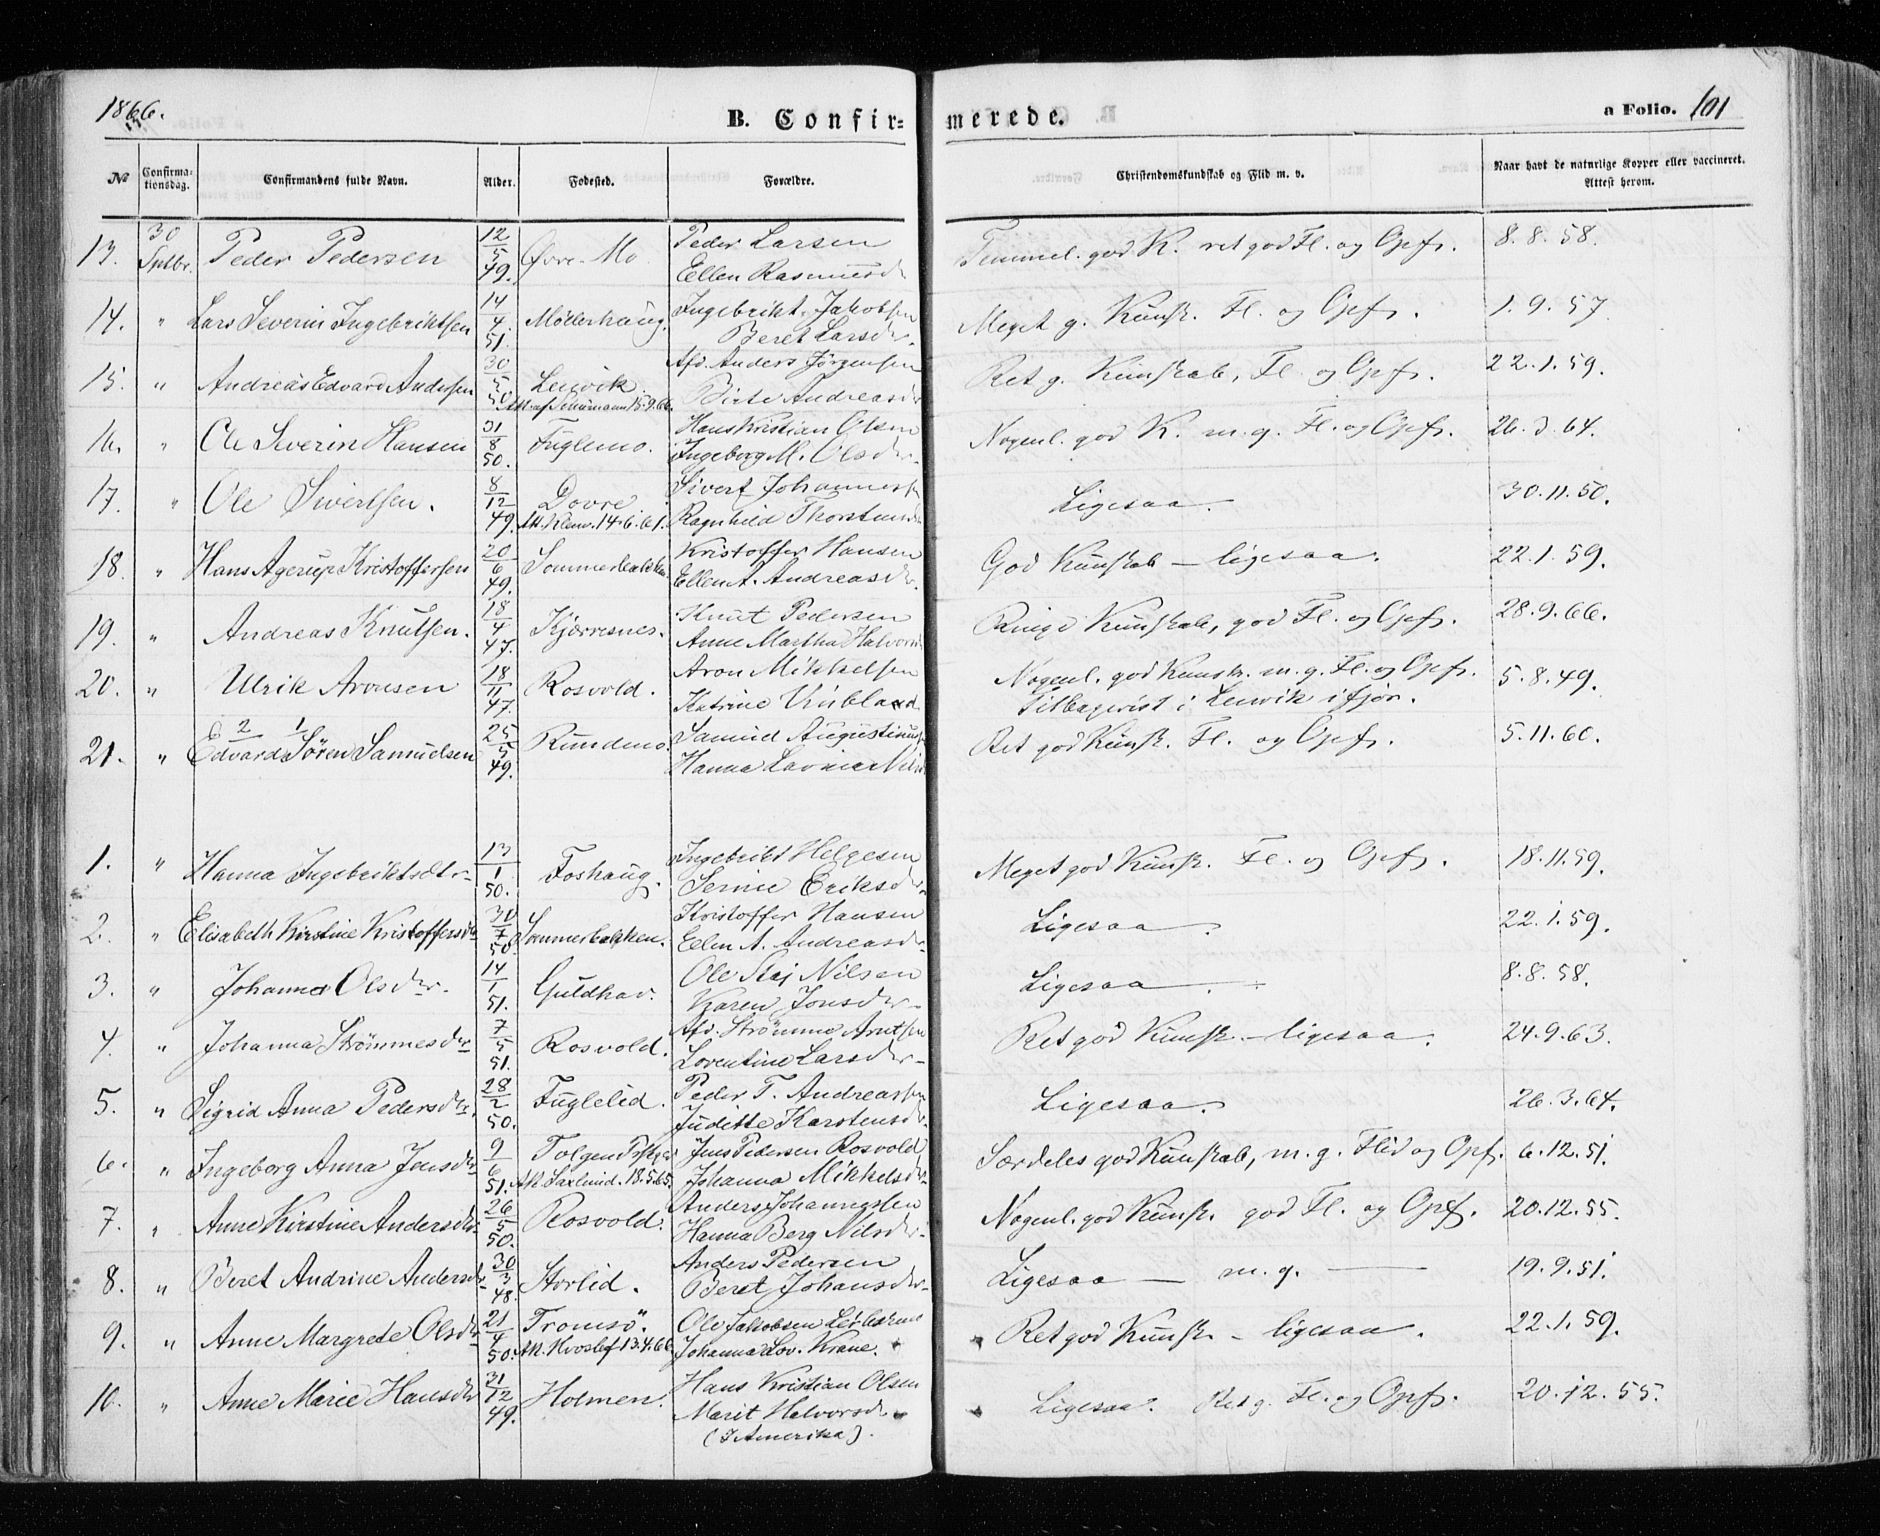 1866.
B. Confir=
merede.
a Folio. 101
No Confirmationsdag. Confirmandens fulde Navn. Alder. Fødested. Forældre. Christendomskundskab og Flid m. v. Naar havt de naturlige Kopper eller vaccineret. Attest herom.
13. 30 Sptbr. Peder Pedersen 12/5 49. Øvre-Mo Peder Larsen Ellen Rasmusd. Temmel. god K. ret god Fl. og Opf. 8.8.58.
14. " Lars Severin Ingebriktsen 14/4 51. Möllerhaug. Ingebrikt Jakobsen Beret Larsdr. Meget g. Kunsk. Fl. og Opf. 1.9.57.
15. " Andreas Edvard Andersen 30/5 50 Lenvik. Att. af Schumann 15.9.66. Afd. Anders Jörgensen Birte Andreasd Ret g. Kunskab, Fl. og Opf. 22.1.59.
16. " Ole Severin Hansen 31/8 50. Fuglemo. Hans Kristian Olsen Ingeborg M. Olsdr. Nogenl. god K. m.g. Fl. og Opf. 26.3.64.
17. " Ole Sivertsen. 8/12 49. Dovre Att. Klem. 14.6.61. Sivert Johannessen Ragnhild Thorstensd Ligesaa. 30.11.50.
18. " Hans Agerup Kristoffersen 20/6 49. Sommerbakken Kristoffer Hansen Ellen A. Andreasdr. God Kunskab – ligesaa. 22.1.59.
19. " Andreas Knutsen. 18/4 47. Kjerresnes. Knut Pedersen Anne Martha Halvorsd Ringe Kunskab, god Fl. og Opf. 28.9.66.
20. " Ulrik Aronsen 18/11 47. Rosvold. Aron Mikkelsen Katrine Kubland Nogenl. god Kunsk. m.g. Fl. og Opf. Tilbagevist i Lenvik ifjor. 5.8.49.
21. " 2 1 Edvard Sören Samuelsen 25/5 49. Rundmo. Samuel Augustinus Hanna Lavina Nils Ret god Kunsk. Fl. og Opf. 5.11.60.
1. " Hanna Ingebriktsdtr 13/1 50. Foshaug. Ingebrikt Helgesen Serine Eriksdr. Meget god Kunsk. Fl. og Opf. 18.11.59.
2. " Elisabeth Kirstine Kristoffersdr 31/7 50 Sommerbakken. Kristoffer Hansen Ellen A. Andreasdr. Ligesaa. 22.1.59.
3. " Johanna Olsdr. 14/1 51. Guldhav. Ole Stej Nilsen Karen Jonsdr. Ligesaa. 8.8.58.
4. " Johanna Strömmesdr 7/5 51. Rosvold. Afd. Strömme Arntsen Lorentine Larsdr. Ret god Kunsk. – ligesaa. 24.9.63.
5. " Sigrid Anna Pedersdr. 28/2 50. Fuglelid. Peder T. Andreassen Juditte Karstensdr. Ligesaa. 26.3.64.
6. " Ingeborg Anna Jensdr 9/6 51. Tolgen Præstgj. Att. Saxlund. 18.5.65. Jens Pedersen Rosvold Johanna Mikkelsdr. Særdeles god Kunskab, m.g. Flid og Opf. 6.12.51.
7. " Anne Kirstine Andersdr 26/5 50. Rosvold. Anders Johannessen Hanna Berg Nilsdr. Nogenl. god Kunsk. god Fl. og Opf. 20.12.55.
8. " Beret Andrine Andersdr 30/3 48. Storlid. Anders Pedersen Beret Johansdr. Ligesaa – m.g. – 19.9.51.
9. " Anne Margrete Olsdr 21/4 50. Tromsö. Att. Hvoslef 13.4.66. Ole Jakobsen Johanna Lov. Krane. Ret god Kunsk – ligesaa. 22.1.59.
10. " Anne Marie Hansdr 31/12 49. Holmen. Hans Kristian Olsen Marit Halvorsdr. (I Amerika). Ligesaa. Ret g. Fl. og Opf. 20.12.55.